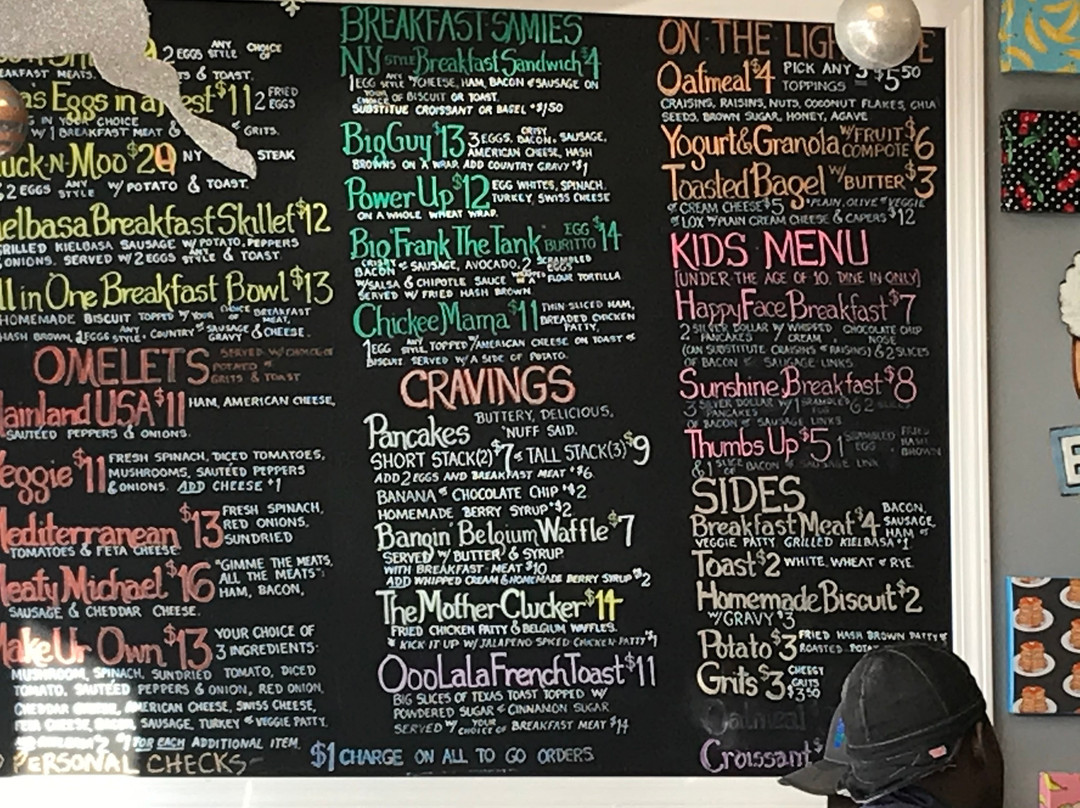 2 EGGS ANY STYLE CHOICE
EAKFAST MEATS. TS & TOAST.
as Eggs in a est $11 2 FRIED EGGS
G IN YOUR CHOICE
W/ 1 BREAKFAST MEAT & GRITS.
uck-N-Moo $20 NY STEAK
& 2 EGGS ANY STYLE W/ POTATO & TOAST.
ielbasa Breakfast Skillet $12
GRILLED KIELBASA SAUSAGE W/ POTATO, PEPPERS
& ONIONS. SERVED W/ 2 EGGS ANY STYLE & TOAST.
ll in One Breakfast Bowl $13
HOMEMADE BISCUIT TOPPED W/ YOUR CHOICE BREAKFAST MEAT,
HASH BROWN, 2 EGGS ANY STYLE, COUNTRY SAUSAGE GRAVY & CHEESE.
OMELETS SERVED W/ CHOICE OF
POTATO OR
GRITS & TOAST
ainland USA $11 HAM, AMERICAN CHEESE,
SAUTÉED PEPPERS & ONIONS.
eggie $11 FRESH SPINACH, DICED TOMATOES,
MUSHROOMS, SAUTÉED PEPPERS
& ONIONS. ADD CHEESE $1
editerranean $13 FRESH SPINACH,
RED ONIONS,
SUNDRIED
TOMATOES & FETA CHEESE.
eaty Michael $16 "GIMME THE MEATS,
ALL THE MEATS":
HAM, BACON,
SAUSAGE & CHEDDAR CHEESE.
ake Ur Own $13 YOUR CHOICE OF
3 INGREDIENTS:
MUSHROOM, SPINACH, SUNDRIED TOMATO, DICED
TOMATO, SAUTÉED PEPPERS & ONION, RED ONION,
CHEDDAR CHEESE, AMERICAN CHEESE, SWISS CHEESE,
FETA CHEESE, BACON, SAUSAGE, TURKEY & VEGGIE PATTY.
$1 FOR EACH ADDITIONAL ITEM.
PERSONAL CHECKS
BREAKFAST SAMIES
NY STYLE Breakfast Sandwich $4
1 EGG ANY STYLE W/ CHEESE, HAM, BACON OR SAUSAGE ON
YOUR CHOICE OF BISCUIT OR TOAST.
SUBSTITUTE CROISSANT OR BAGEL +$1/50
Big Guy $13 3 EGGS, CRISPY BACON, SAUSAGE,
AMERICAN CHEESE, HASH
BROWNS ON A WRAP. ADD COUNTRY GRAVY $1
Power Up $12 EGG WHITES, SPINACH,
TURKEY, SWISS CHEESE
ON A WHOLE WHEAT WRAP.
Big Frank The Tank EGG BURITTO $14
CRISPY BACON OR SAUSAGE, AVOCADO, 2 SCRAMBLED EGGS
W/ SALSA & CHIPOTLE SAUCE WRAPPED IN A FLOUR TORTILLA
SERVED W/ FRIED HASH BROWN.
Chickee Mama $11 THIN SLICED HAM,
BREADED CHICKEN
PATTY,
1 EGG ANY STYLE, TOPPED W/ AMERICAN CHEESE ON TOAST OR
BISCUIT SERVED W/ A SIDE OF POTATO.
CRAVINGS
Pancakes BUTTERY, DELICIOUS,
'NUFF SAID.
SHORT STACK(2) $7 OR TALL STACK(3) $9
ADD 2 EGGS AND BREAKFAST MEAT +$6.
BANANA OR CHOCOLATE CHIP +$2
HOMEMADE BERRY SYRUP +$2
Bangin' Belgium Waffle $7
SERVED W/ BUTTER & SYRUP.
WITH BREAKFAST MEAT $10
ADD WHIPPED CREAM & HOMEMADE BERRY SYRUP $2
The Mother Clucker $14
FRIED CHICKEN PATTY & BELGIUM WAFFLES.
* KICK IT UP W/ JALAPENO SPICED CHICKEN PATTY $1
Ooo La La French Toast $11
BIG SLICES OF TEXAS TOAST TOPPED W/
POWDERED SUGAR & CINNAMON SUGAR
SERVED W/ YOUR CHOICE OF BREAKFAST MEAT $14
$1 CHARGE ON ALL TO GO ORDERS.
ON THE LIGH E
Oatmeal $4 PICK ANY 3 TOPPINGS = $5.50
CRAISINS, RAISINS, NUTS, COCONUT FLAKES, CHIA
SEEDS, BROWN SUGAR, HONEY, AGAVE
Yogurt & Granola W/ FRUIT COMPOTE $6
Toasted Bagel W/ BUTTER $3
OR CREAM CHEESE $5 *PLAIN, OLIVE OR VEGGIE
OR LOX W/ PLAIN CREAM CHEESE & CAPERS $12
KIDS MENU
[UNDER THE AGE OF 10. DINE IN ONLY]
Happy Face Breakfast $7
2 SILVER DOLLAR PANCAKES W/ WHIPPED CREAM & CHOCOLATE CHIP NOSE
(CAN SUBSTITUTE CRAISINS OR RAISINS) & 2 SLICES
OF BACON OR SAUSAGE LINKS.
Sunshine Breakfast $8
3 SILVER DOLLAR PANCAKES W/ 1 SCRAMBLED EGG & 2 SLICES
OF BACON OR SAUSAGE LINKS
Thumbs Up $5 1 SCRAMBLED EGG FRIED HASH BROWN
& 1 SLICE OF BACON OR SAUSAGE LINK
SIDES
Breakfast Meat $4 BACON,
SAUSAGE,
HAM OR
VEGGIE PATTY GRILLED KIELBASA +$1
Toast $2 WHITE, WHEAT OR RYE.
Homemade Biscuit $2
W/ GRAVY $3
Potato $3 FRIED HASH BROWN PATTY OR
ROASTED
Grits $3 CHEESY GRITS $3.50
Oatmeal
Croissant $